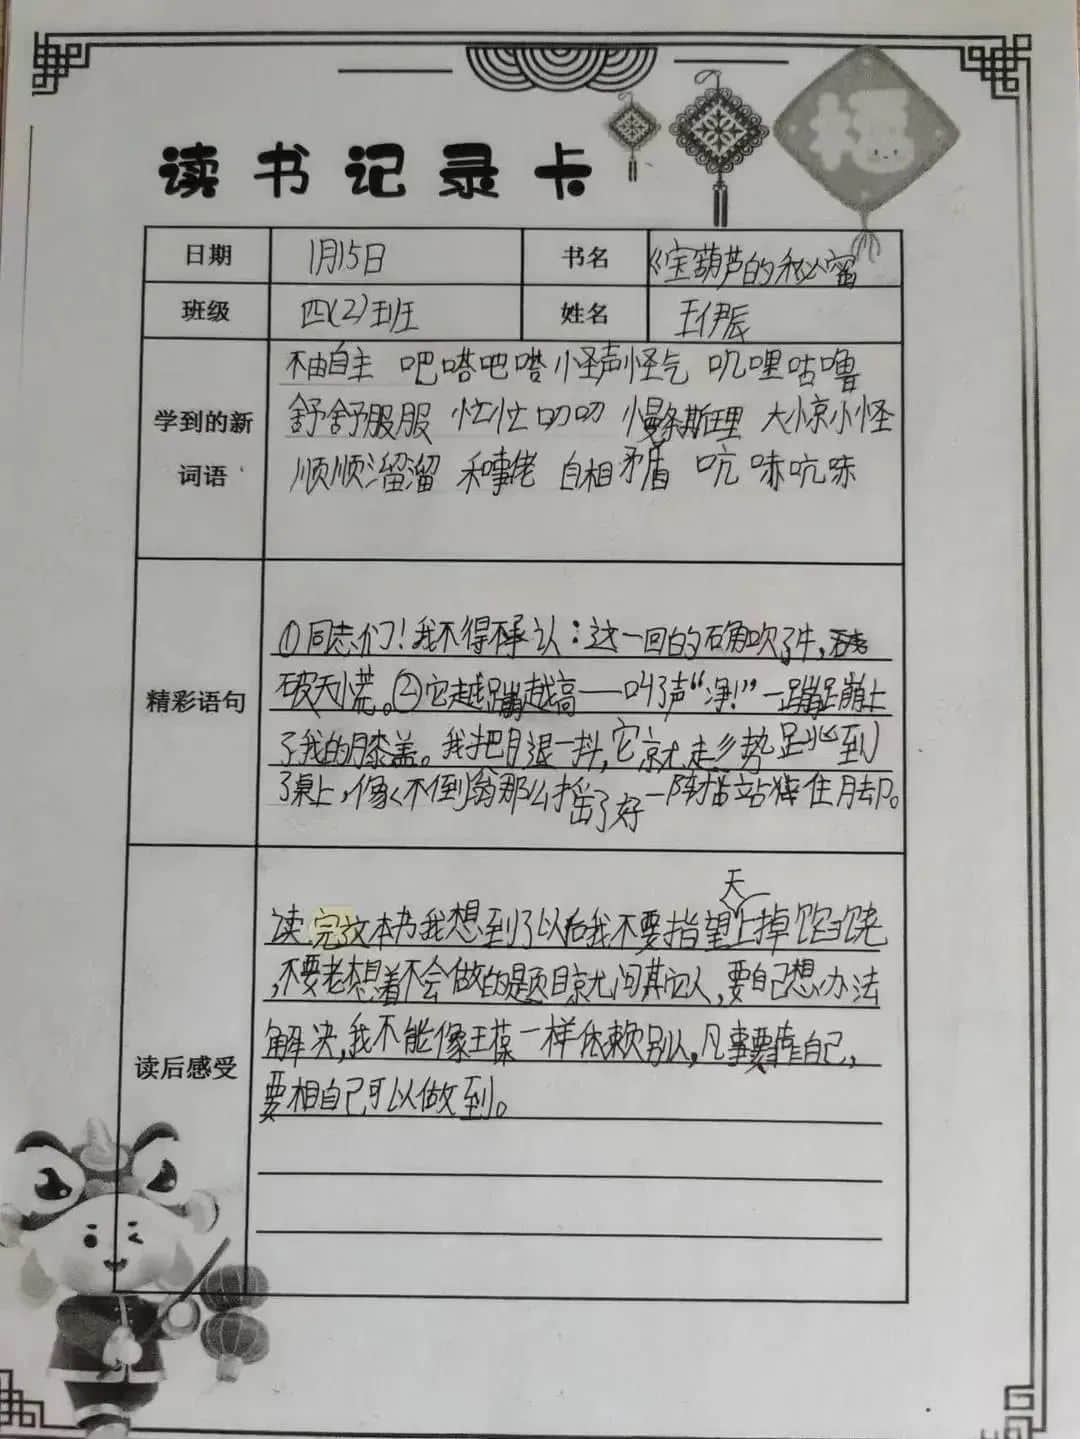 福
读书记录卡
日期 1月15日 书名 《宝葫芦的秘密
班级 四(2)班 姓名 王伊辰
学到的新词语
不由自主 吧嗒吧嗒 怪声怪气 叽哩咕噜
舒舒服服 忙忙叨叨 慢条斯理 大惊小怪
顺顺溜溜 和事佬 自相矛盾 吭哧吭哧
精彩语句
①同志们!我不得不承认:这一回的确吹了牛,
破天荒。②它越蹦越高——叫了声“净!”一蹦蹦上
了我的膝盖。我把腿一抖,它就趁势跳到
了桌上,像不倒翁那么摇了好一阵才站住脚。
读后感受
读完这本书我想到了以后我不要指望天上掉馅饼
,不要老想着不会做的题目就问其它人,要自己想办法
解决,我不能像王葆一样依赖别人,凡事要靠自己,
要相自己可以做到。